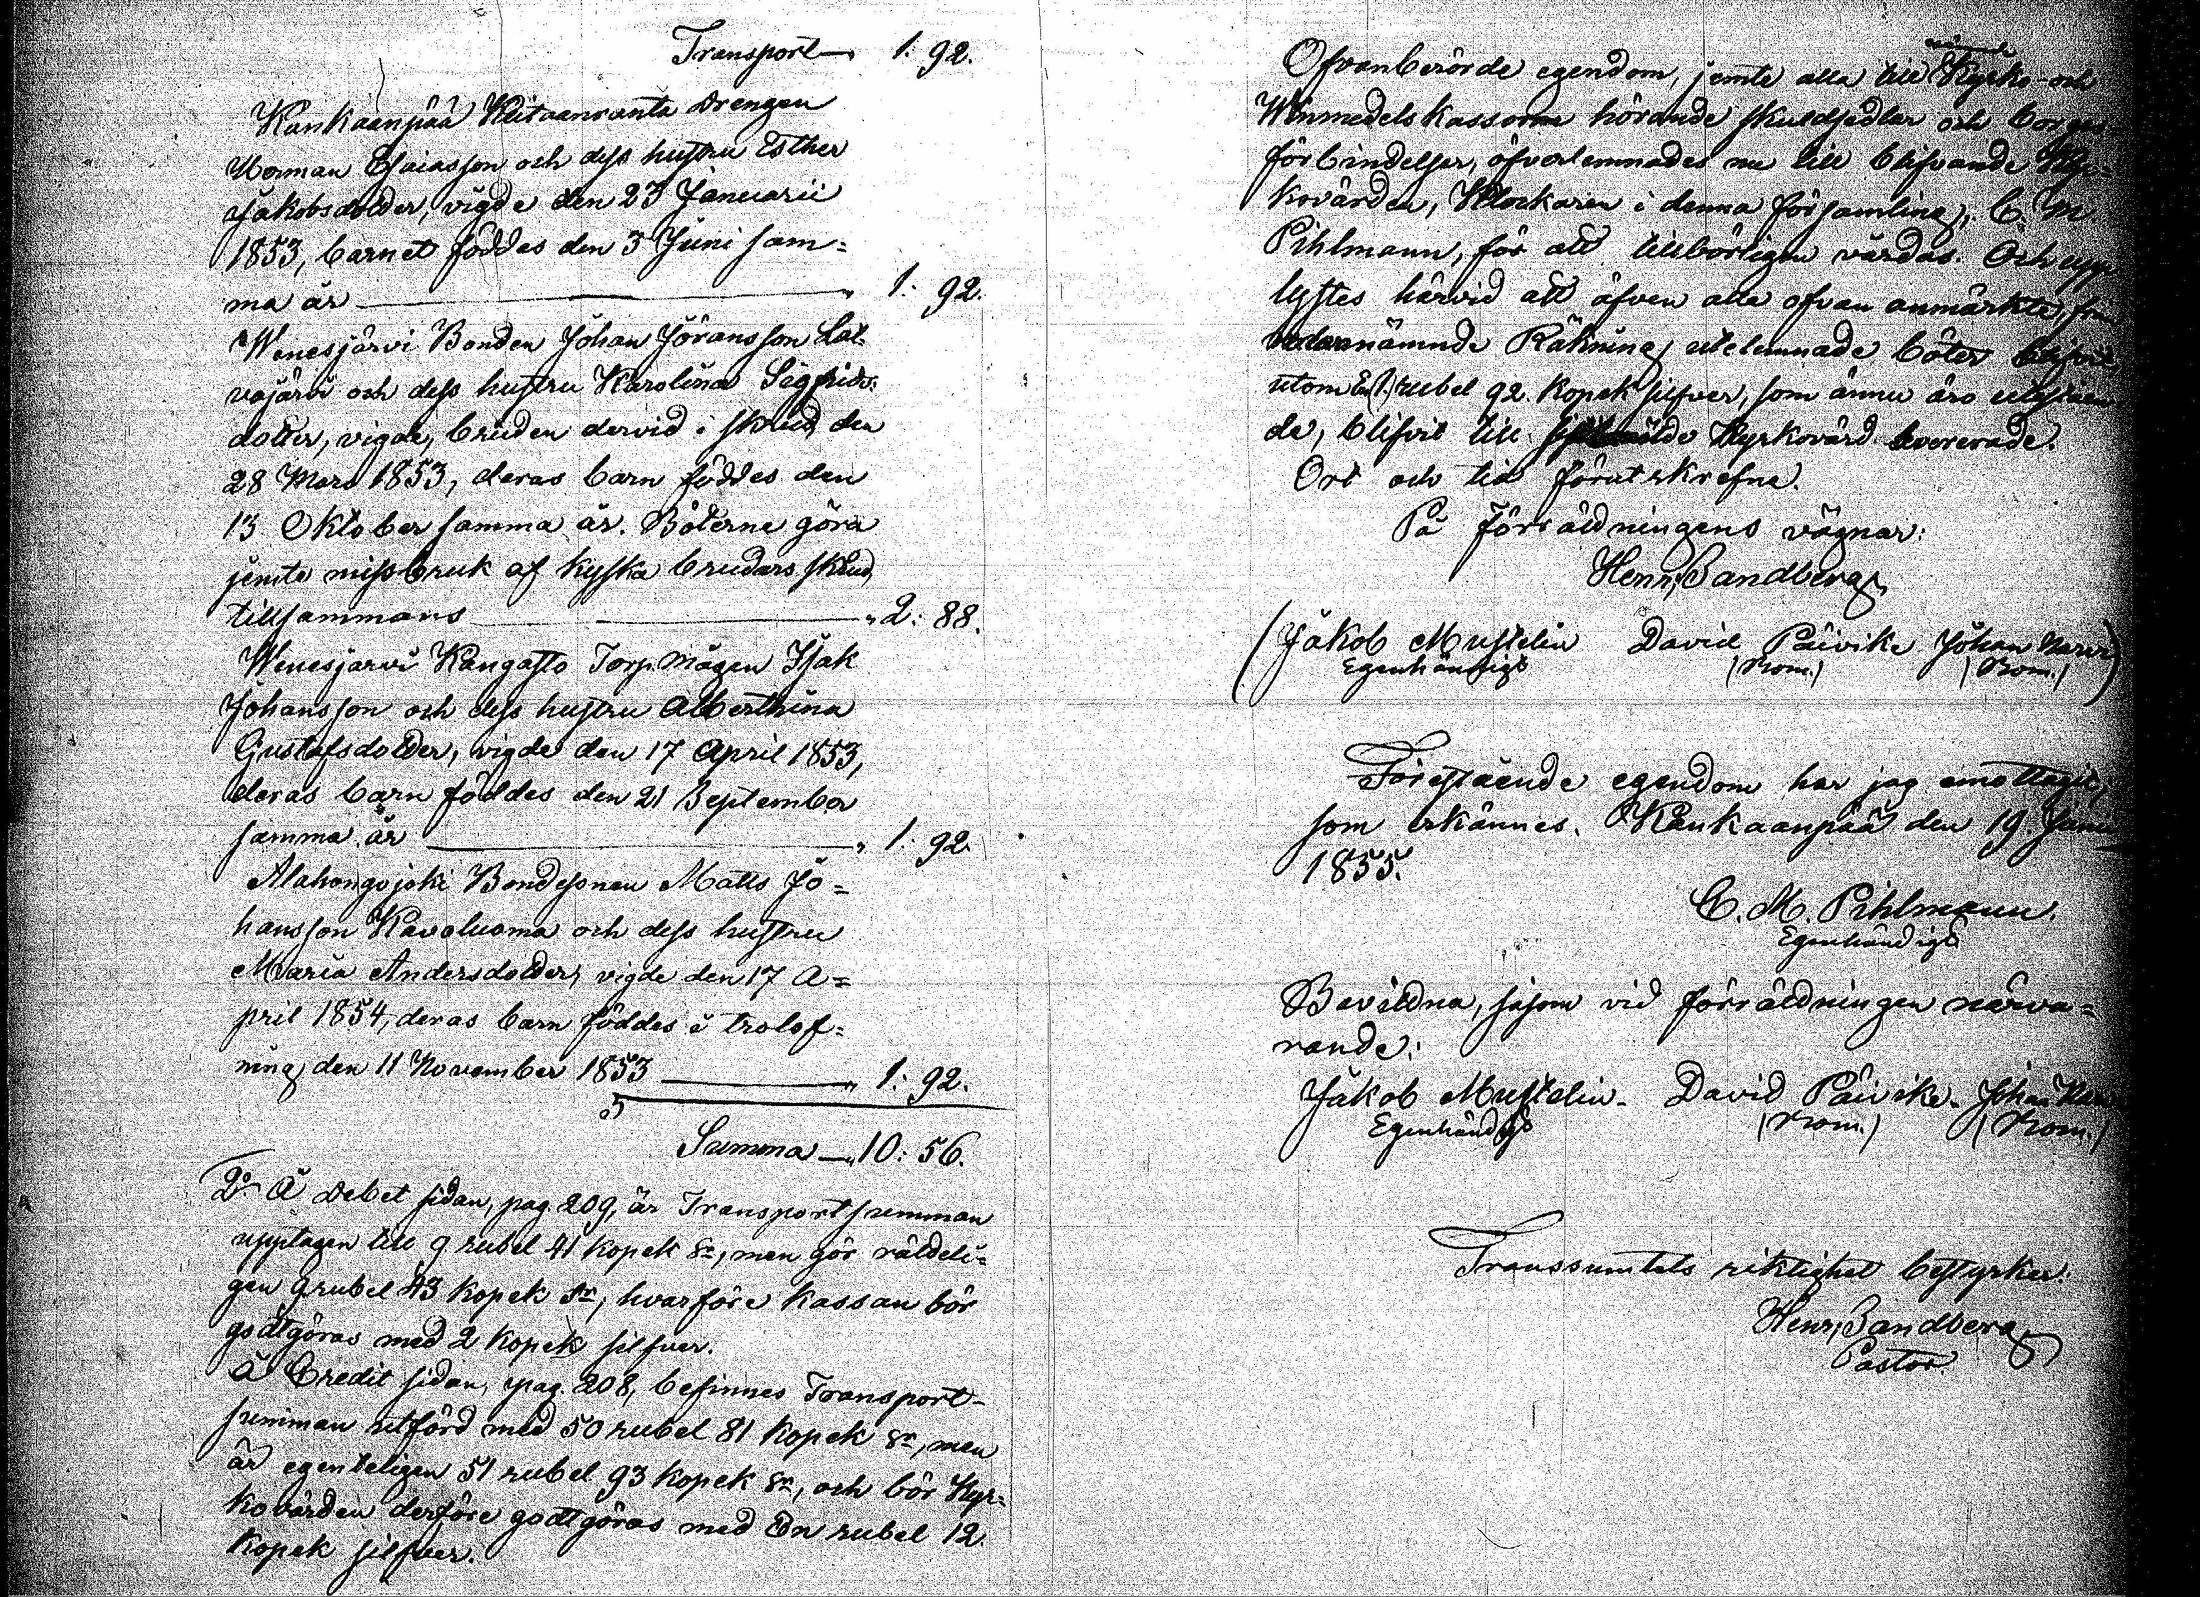 Transport — 1. 92.
Kankaanpää Drengen
Herman Esaiasson och dess hustru Esther
Jakobsdotter, vigde den 23 Januarii
1853, barnet föddes den 3 Juni sam=
ma år — " 1. 92.
Wenesjärvi Bonden Johan Jöransson Lat-
vajärvi och dess hustru Karolina Sigfrids-
dotter, vigde, bruden dervid i skrud, den
28 Mars 1853, deras barn föddes den
13 Oktober samma år. Böterne göra
jemte missbruk af kyska brudars skrud
tillsammans — " 2: 88.
Wenesjärvi Kangasto Torp. Mågen Isak
Johansson och dess hustru Alberthina
Gustafsdotter, vigde den 17 April 1853,
deras barn föddes den 21 September
samma år — " 1. 92.
Alahongojoki Bondesonen Matts Jo=
hansson Kavaluoma och dess hustru
Maria Andersdotter, vigde den 17 A=
pril 1854, deras barn föddes i trolof=
ning den 11 November 1853 — " 1. 92.
Summa — " 10: 56.
2o Å Debet sidan, pag. 209, är Transportsumman
upptagen till 9 rubel 41 kopek Sr, men gör rätteli=
gen 9 rubel 43 kopek Sr, hvarföre kassan bör
godtgöras med 2 kopek silfver.
Å Credit sidan, pag. 208, befinnes Transport-
summan utförd med 50 rubel 81 kopek Sr, men
är egenteligen 51 rubel 93 kopek Sr, och bör Kyr=
kovärden derföre godtgöras med En rubel 12.
kopek silfver.
Ofvanberörde egendom, jemte alla till Kyrko- och
Winmedelskassorne hörande skuldsedlar och borges-
förbindelser, öfverlemnades nu till blifvande Kyr=
kovärden, Klockaren i denna församling, C. M.
Pihlmann, för att tillbörligen vårdas. Och upp
lystes härvid att äfven alla ofvan anmärkte,
nämnde Räkning utelemnade böter
utom En rubel 92 kopek silfver, som ännu äro
de, blifvit till Kyrkovärd levererade.
Ort och tid förutskrefne.
På Förrättningens vägnar:
Henr. Sandberg
(Jakob Mustelin David Päivike Johan
Egenhändigt (Nom.) (Nom.)
Förestående egendom har jag emottagit,
som erkännes. Kankaanpää den 19 Juni
1855.
C. M. Pihlmann.
Egenhändigt
Bevittna, såsom vid förrättningen närva=
rande:
Jakob Mustelin. David Päivike. Johan
Egenhändigt (Nom.) (Nom.)
Transsumtets riktighet bestyrker:
Henr. Sandberg
Pastor.